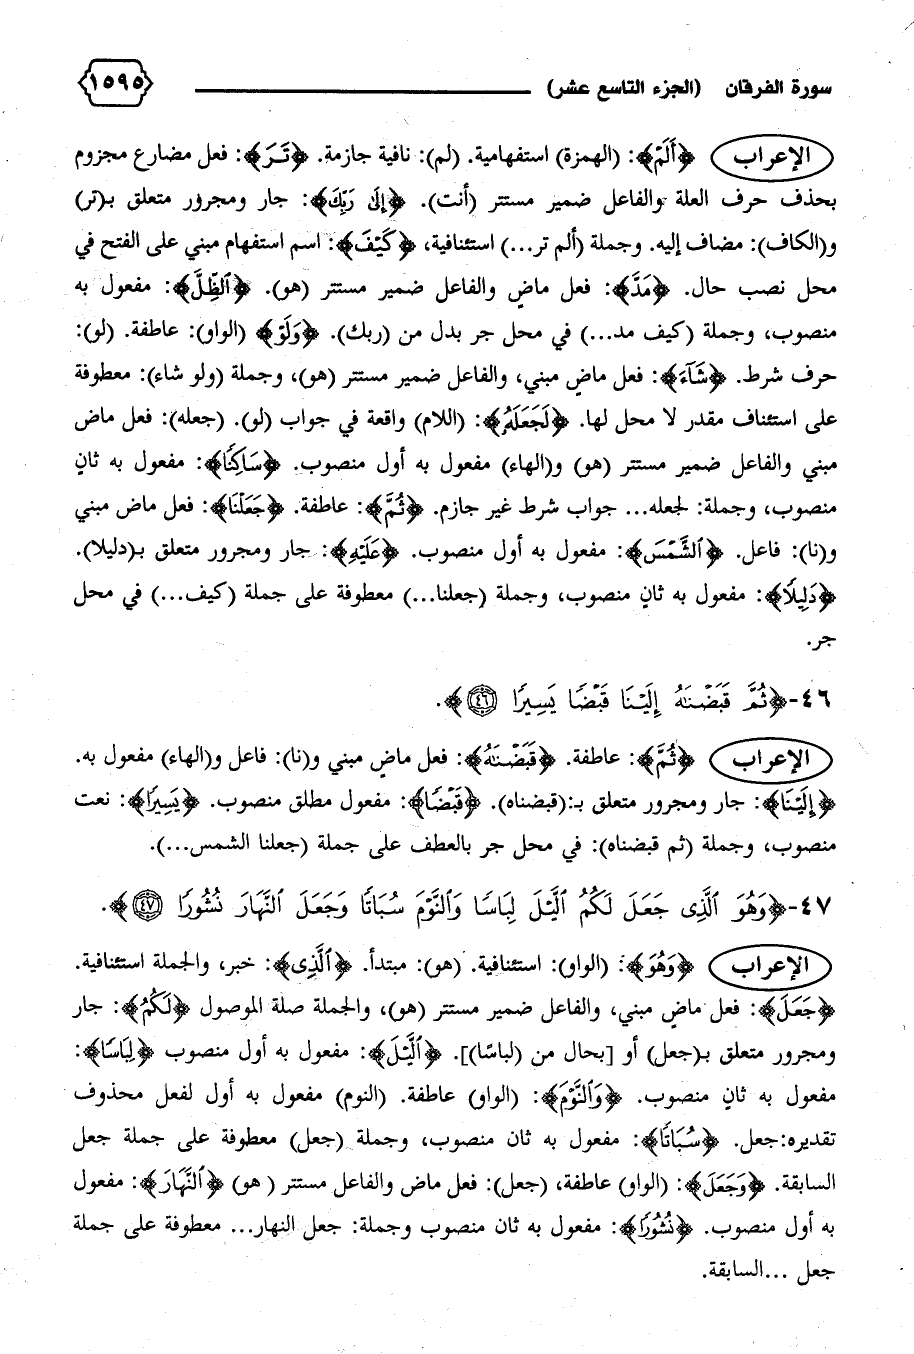 سورة الفرقان (الجزء التاسع عشر) ١٥٩٥
الإعراب ﴿أَلَمْ﴾: (الهمزة) استفهامية. (لم): نافية جازمة. ﴿تَرَ﴾: فعل مضارع مجزوم
بحذف حرف العلة والفاعل ضمير مستتر (أنت). ﴿إِلَى رَبِّكَ﴾: جار ومجرور متعلق بـ(تر)
و(الكاف): مضاف إليه. وجملة (ألم تر...) استئنافية، ﴿كَيْفَ﴾: اسم استفهام مبني على الفتح في
محل نصب حال. ﴿مَدَّ﴾: فعل ماضٍ والفاعل ضمير مستتر (هو). ﴿ٱلظِّلَّ﴾: مفعول به
منصوب، وجملة (كيف مد...) في محل جر بدل من (ربك). ﴿وَلَوْ﴾ (الواو): عاطفة. (لو):
حرف شرط. ﴿شَآءَ﴾: فعل ماضٍ مبني، والفاعل ضمير مستتر (هو)، وجملة (ولو شاء): معطوفة
على استئناف مقدر لا محل لها. ﴿لَجَعَلَهُۥ﴾: (اللام) واقعة في جواب (لو). (جعله): فعل ماض
مبني والفاعل ضمير مستتر (هو) و(الهاء) مفعول به أول منصوب. ﴿سَاكِنًا﴾: مفعول به ثانٍ
منصوب، وجملة: لجعله... جواب شرط غير جازم. ﴿ثُمَّ﴾: عاطفة. ﴿جَعَلْنَا﴾: فعل ماض مبني
و(نا): فاعل. ﴿ٱلشَّمْسَ﴾: مفعول به أول منصوب. ﴿عَلَيْهِ﴾: جار ومجرور متعلق بـ(دليلا).
﴿دَلِيلًا﴾: مفعول به ثانٍ منصوب، وجملة (جعلنا...) معطوفة على جملة (كيف...) في محل
جر.
٤٦-﴿ثُمَّ قَبَضْنَٰهُ إِلَيْنَا قَبْضًا يَسِيرًا ٤٦﴾.
الإعراب ﴿ثُمَّ﴾: عاطفة. ﴿قَبَضْنَٰهُ﴾: فعل ماضٍ مبني و(نا): فاعل و(الهاء) مفعول به.
﴿إِلَيْنَا﴾: جار ومجرور متعلق بـ:(قبضناه). ﴿قَبْضًا﴾: مفعول مطلق منصوب. ﴿يَسِيرًا﴾: نعت
منصوب، وجملة (ثم قبضناه): في محل جر بالعطف على جملة (جعلنا الشمس...).
٤٧-﴿وَهُوَ ٱلَّذِى جَعَلَ لَكُمُ ٱلَّيْلَ لِبَاسًا وَٱلنَّوْمَ سُبَاتًا وَجَعَلَ ٱلنَّهَارَ نُشُورًا ٤٧﴾.
الإعراب ﴿وَهُوَ﴾: (الواو): استئنافية. (هو): مبتدأ. ﴿ٱلَّذِى﴾: خبر، والجملة استئنافية.
﴿جَعَلَ﴾: فعل ماضٍ مبني، والفاعل ضمير مستتر (هو)، والجملة صلة الموصول ﴿لَكُمُ﴾: جار
ومجرور متعلق بـ(جعل) أو [بحال من (لباسًا)]. ﴿ٱلَّيْلَ﴾: مفعول به أول منصوب ﴿لِبَاسًا﴾:
مفعول به ثانٍ منصوب. ﴿وَٱلنَّوْمَ﴾: (الواو) عاطفة. (النوم) مفعول به أول لفعل محذوف
تقديره:جعل. ﴿سُبَاتًا﴾: مفعول به ثان منصوب، وجملة (جعل) معطوفة على جملة جعل
السابقة. ﴿وَجَعَلَ﴾: (الواو) عاطفة، (جعل): فعل ماض والفاعل مستتر ( هو) ﴿ٱلنَّهَارَ﴾: مفعول
به أول منصوب. ﴿نُشُورًا﴾: مفعول به ثان منصوب وجملة: جعل النهار... معطوفة على جملة
جعل ...السابقة.